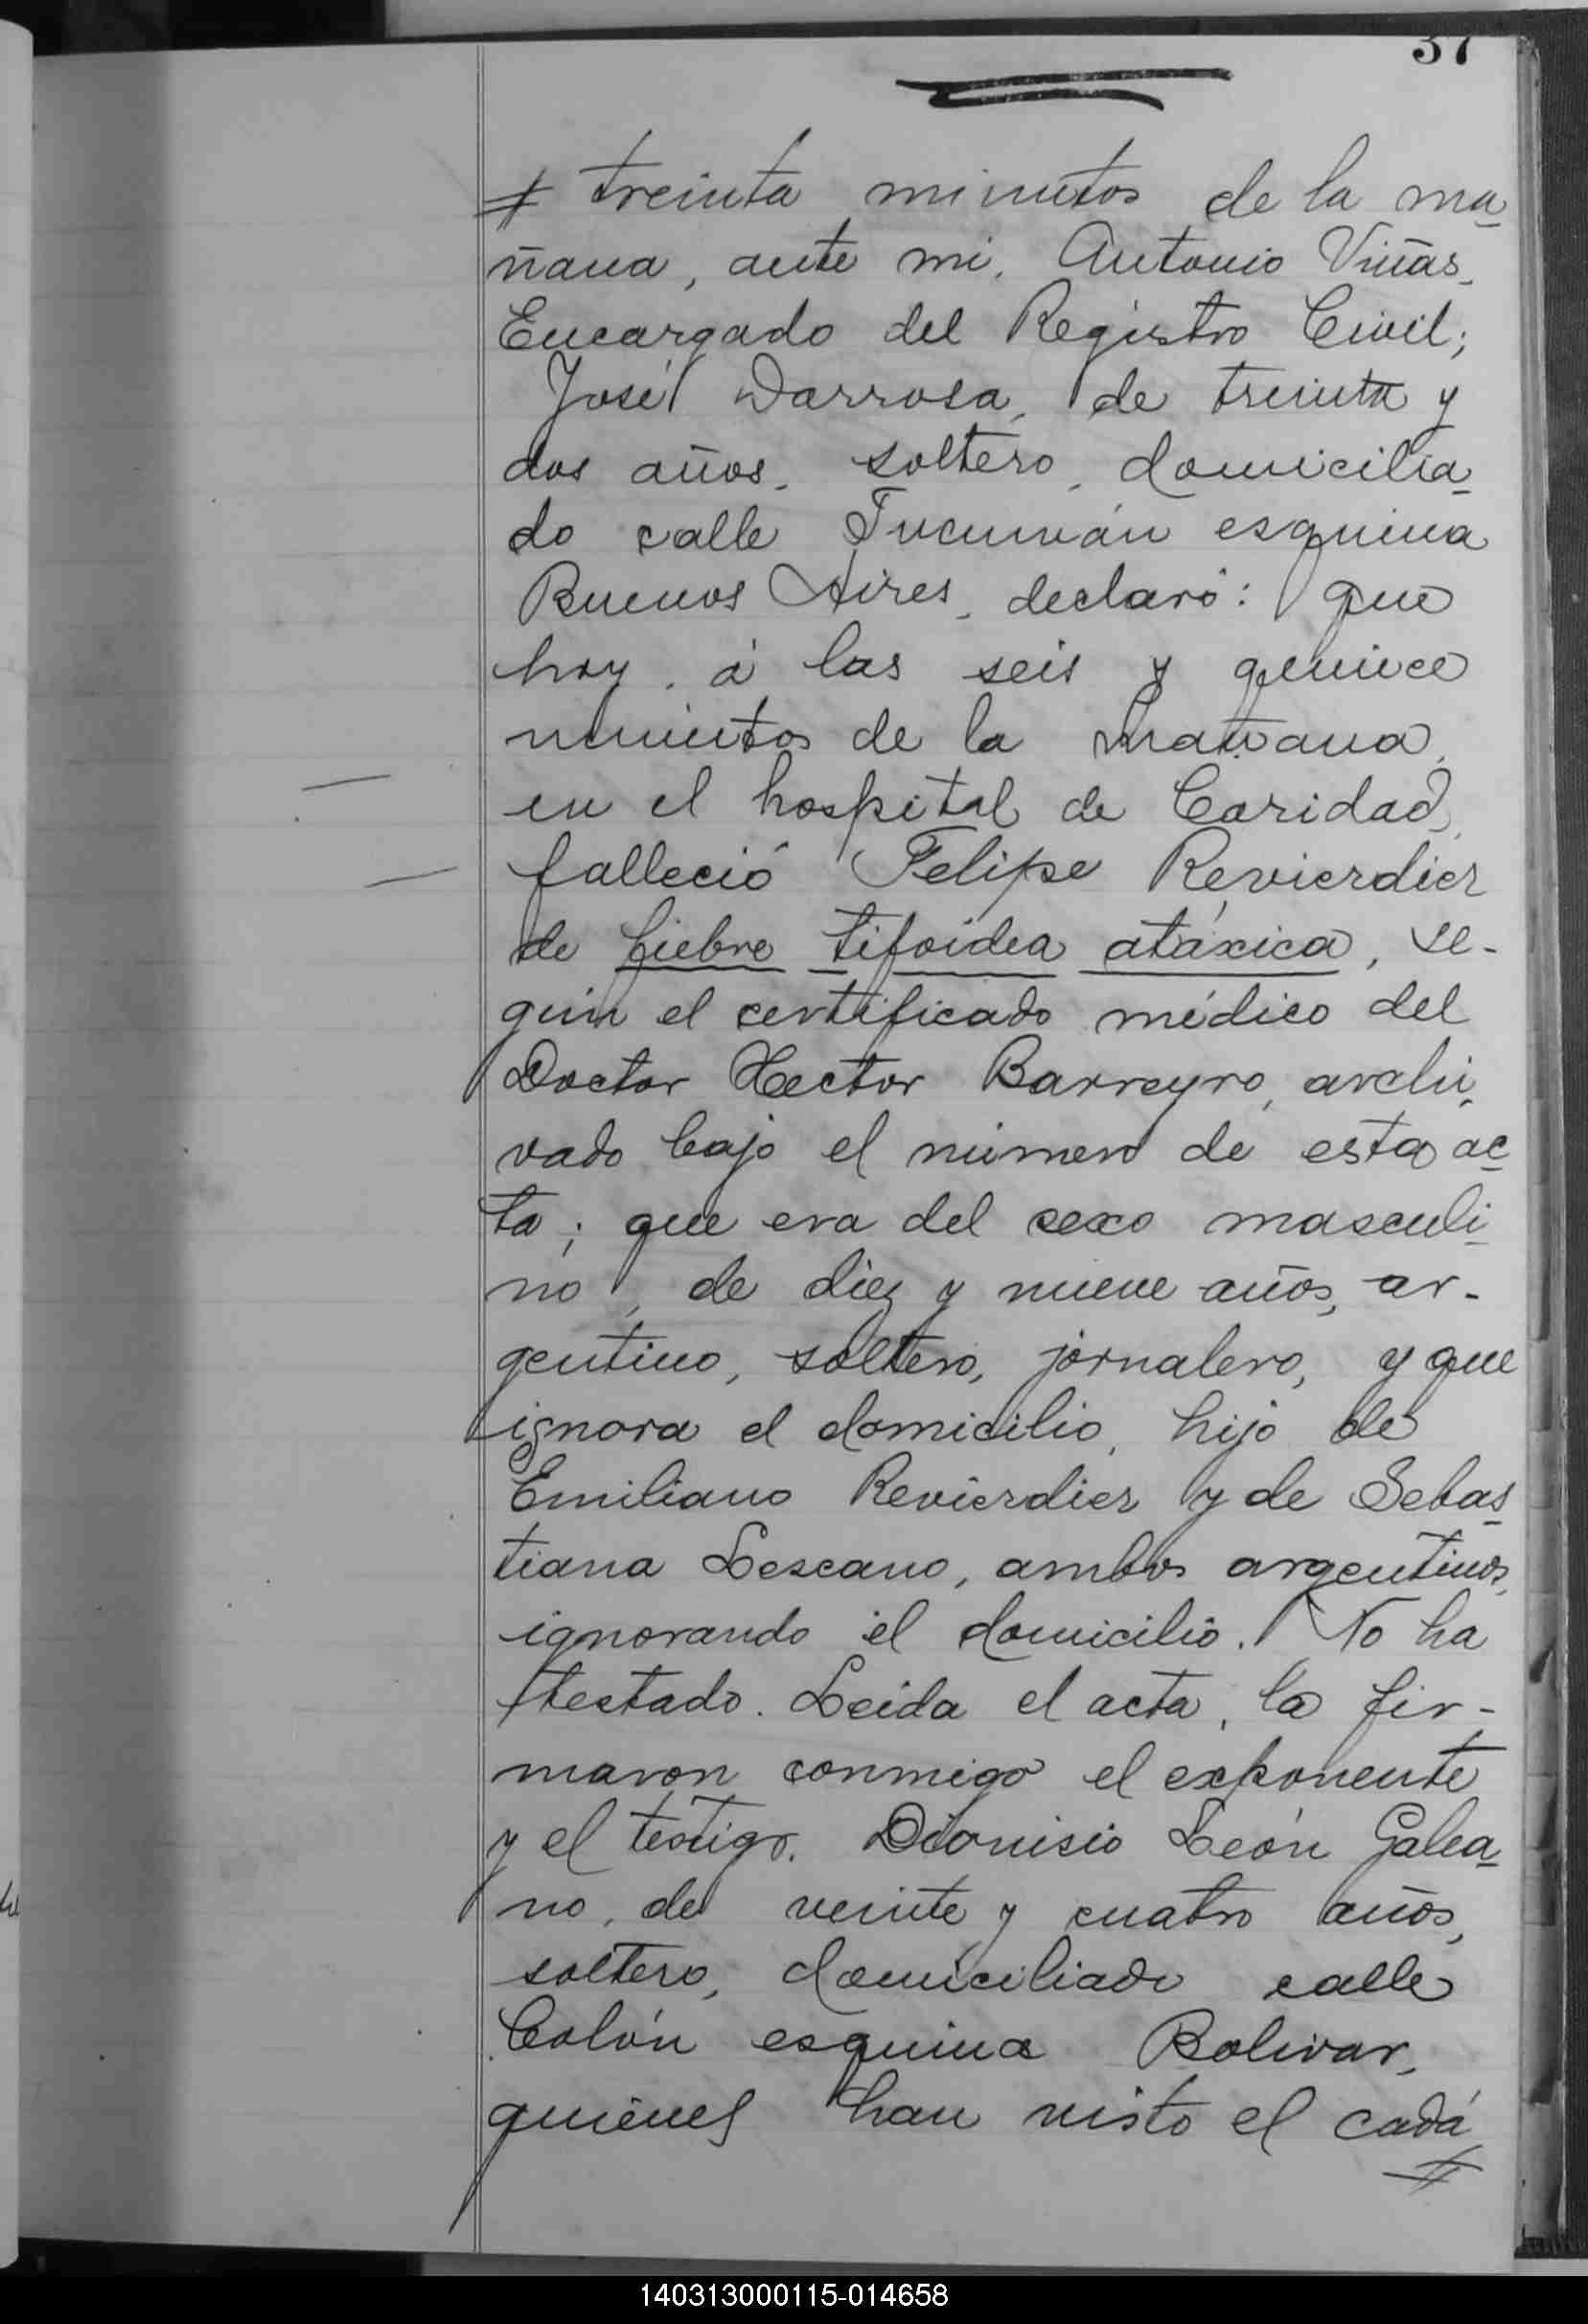 37
# treinta minutos de la ma
ñana, ante mi, Antonio Viñas,
Encargado del Registro Civil;
José Darrosa, de treinta y
dos años, soltero, domicilia-
do calle Tucumán esquina
Buenos Aires, declaró: que
hoy, á las seis y quince
minutos de la mañana,
en el hospital de Caridad,
falleció Felipe Revierdier
de fiebre tifoidea atáxica, se-
gún el certificado médico del
Doctor Hector Barreyro, archi-
vado bajo el número de esta ac
ta; que era del sexo masculi
no, de diez y nueve años, ar-
gentino, soltero, jornalero, y que
ignora el domicilio, hijo de
Emiliano Revierdier y de Sebas
tiana Lescano, ambos argentinos,
ignorando el domicilio. No ha
testado. Leida el acta, la fir-
maron conmigo el exponente
y el testigo. Dionisio León Galea
no, de veinte y cuatro años,
soltero, domiciliado calle
Colón esquina Bolivar,
quienes han visto el cadá
#
140313000115-014658